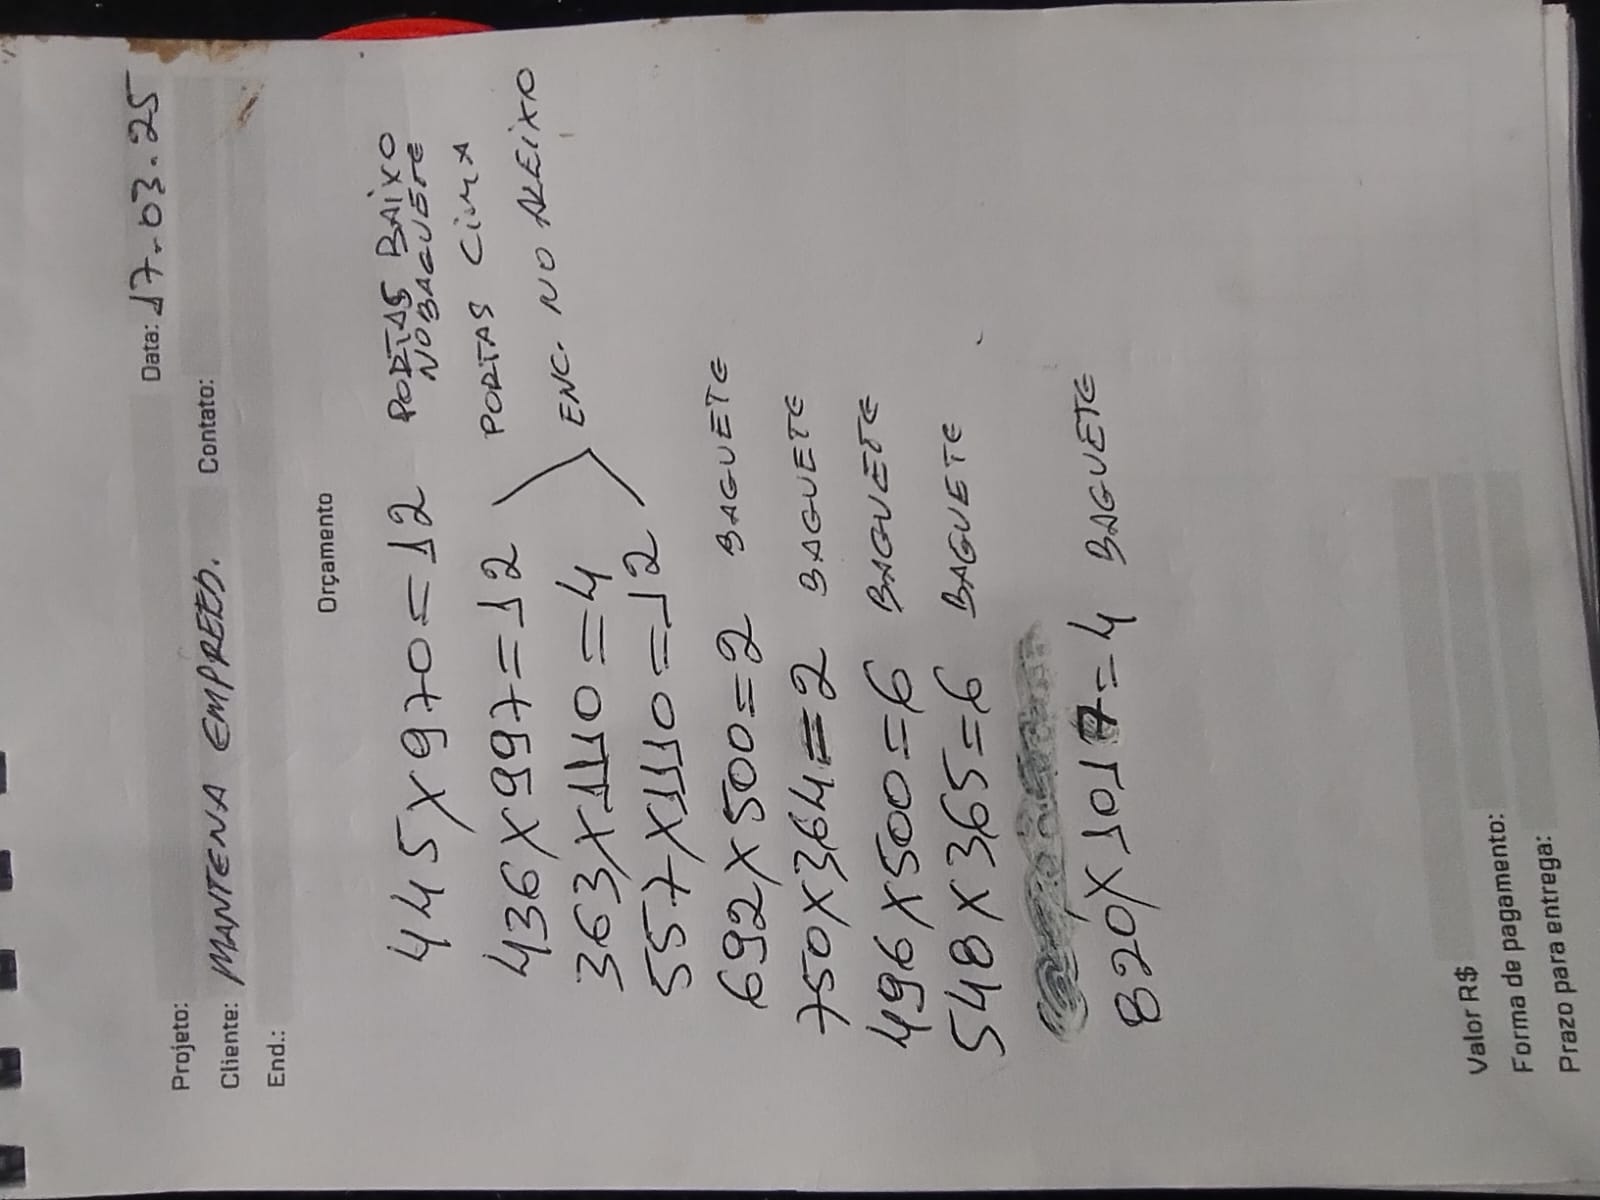 Data: 17-03.25
Projeto:
Cliente: MANTENA EMPREED. Contato:
End.:
Orçamento
445X970=12 PORTAS BAIXO
NO BAGUETE
436X997=12 PORTAS CIMA
363X1110=4 ENC. NO ALEIXO
557X1110=12
692X500=2 BAGUETE
750X364=2 BAGUETE
496X500=6 BAGUETE
548X365=6 BAGUETE
820X1017=4 BAGUETE
Valor R$
Forma de pagamento:
Prazo para entrega: